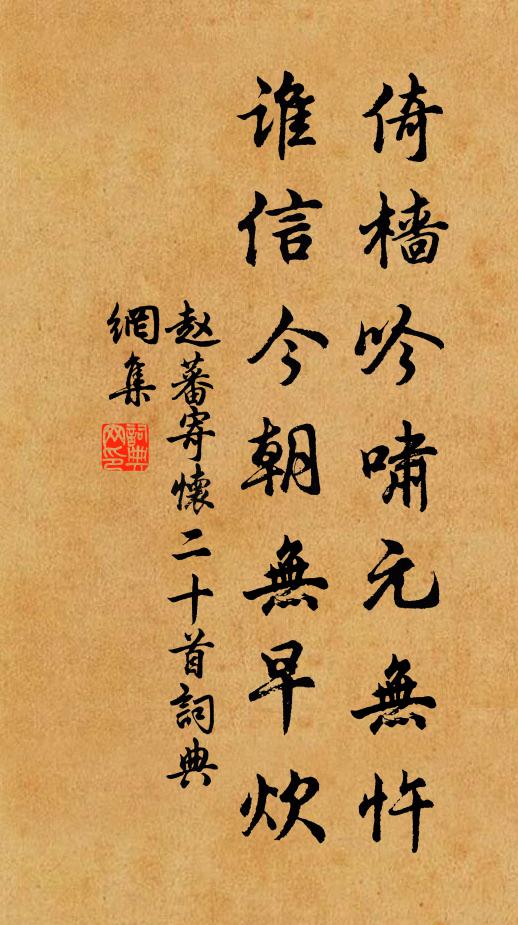 倚樯吟啸元無忤
谁信今朝無早炊
赵蕃寄懷二十首詞典
網集
詞典網印